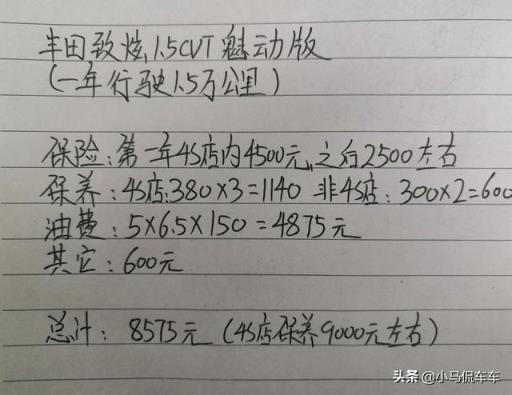 丰田致炫1.5CVT魅动版
(一年行驶1.5万公里)
保险:第一年4S店内4500元,之后2500左右
保养:4S店:380×3=1140 非4S店:300×2=600
油费:5×6.5×150=4875元
其它:600元
总计:8575元(4S店保养9000元左右)
头条 @小马侃车车